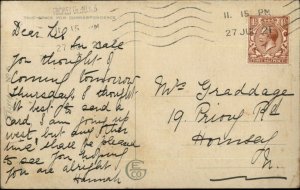 THIS SPACE FOR CORRESPONDENCE
11. 15 PM
27 JU
Dear Lil
You said
you thought of
coming tomorrow
Thursday, I thought
it best to send a
card I am going up
west, but any other
time I shall be pleased
to see you hoping
you are alright
Hannah
Mrs Graddage
19, Priory Rd
Hornsey
N.